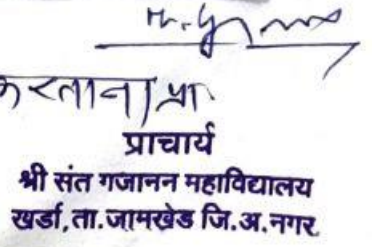 करताना प्रा.
प्राचार्य
श्री संत गजानन महाविद्यालय
खर्डा,ता.जामखेड जि.अ.नगर